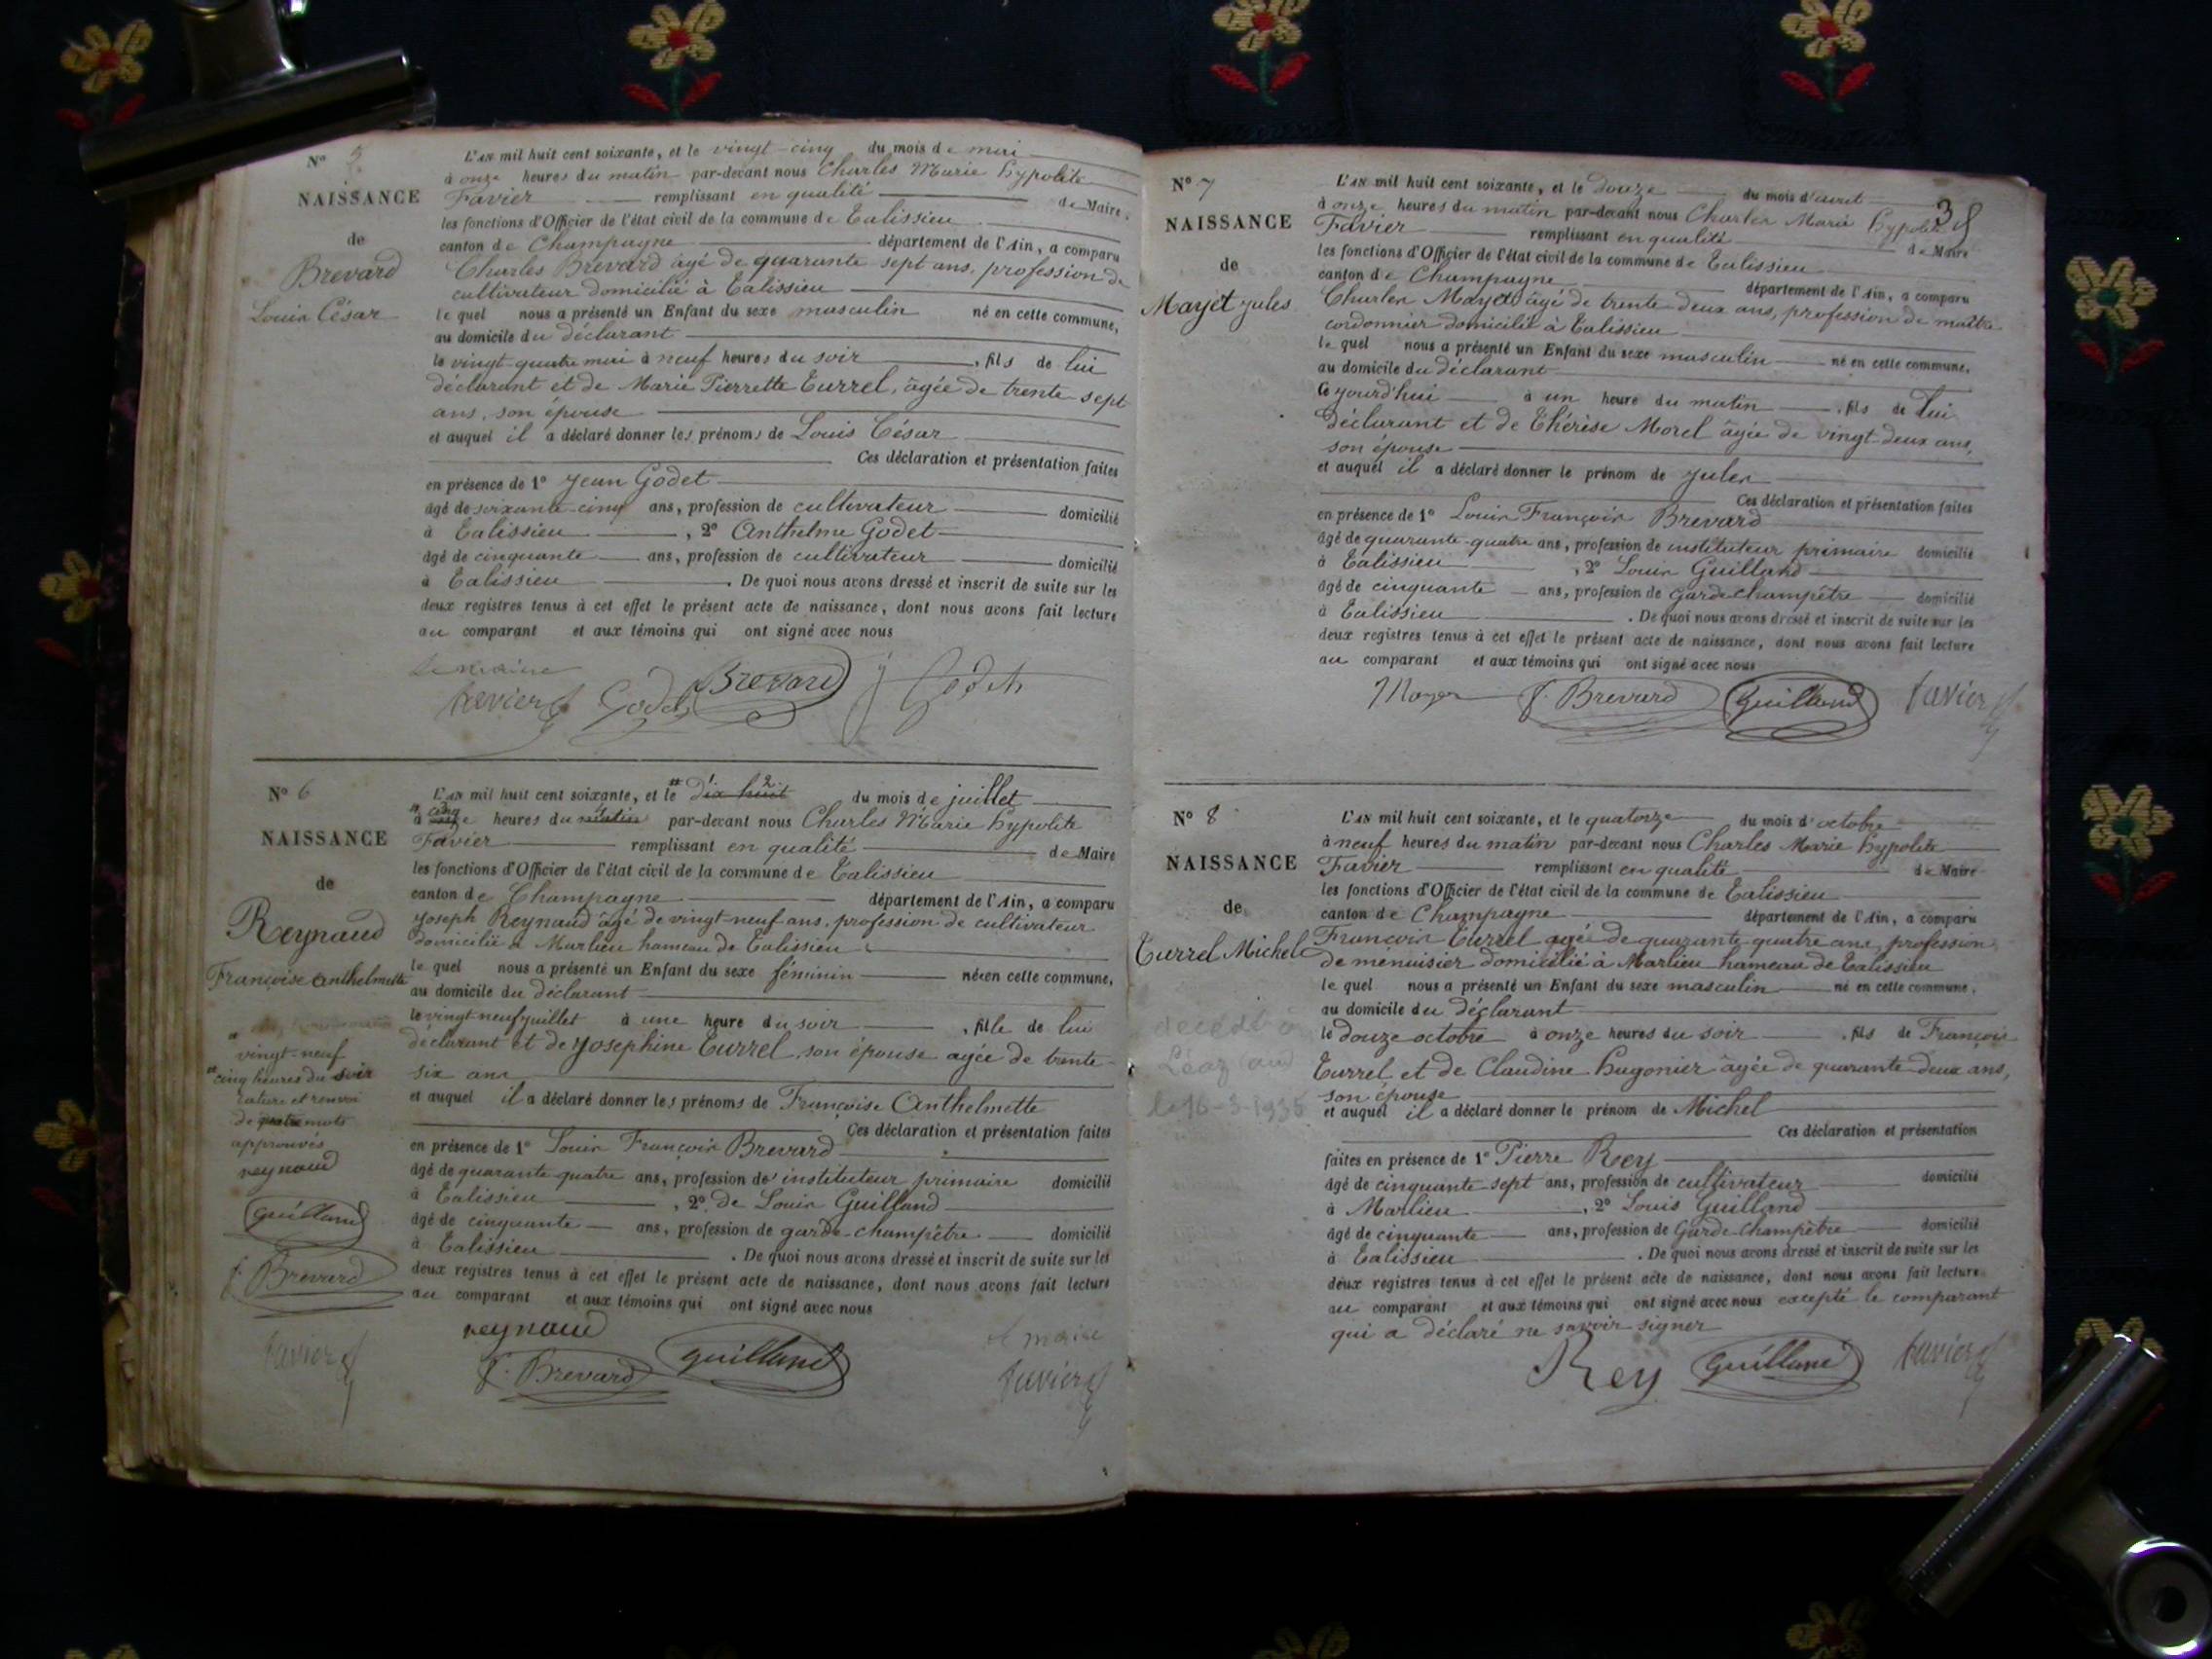 N° 5
NAISSANCE
de
Brevard
Louis César
L'AN mil huit cent soixante, et le vingt-cinq du mois de mai
à onze heures du matin par-devant nous Charles Marie hypolite
Favier remplissant en qualité de Maire,
les fonctions d'Officier de l'état civil de la commune de Talissieu
canton de Champagne département de l'Ain, a comparu
Charles Brevard âgé de quarante sept ans, profession de
cultivateur domicilié à Talissieu
le quel nous a présenté un Enfant du sexe masculin né en cette commune,
au domicile du déclarant
le vingt-quatre mai à neuf heures du soir , fils de lui
déclarant et de Marie Pierrette Turrel, âgée de trente sept
ans, son épouse
et auquel il a déclaré donner les prénoms de Louis César
Ces déclaration et présentation faites
en présence de 1° Jean Godet
âgé de soixante-cinq ans, profession de cultivateur domicilié
à Talissieu , 2° Anthelme Godet
âgé de cinquante ans, profession de cultivateur domicilié
à Talissieu . De quoi nous avons dressé et inscrit de suite sur les
deux registres tenus à cet effet le présent acte de naissance, dont nous avons fait lecture
au comparant et aux témoins qui ont signé avec nous
le maire
favier Godet Brevard J Godet
N° 6
NAISSANCE
de
Reynaud
Françoise Anthelmette
vingt-neuf
cinq heures du soir
rature et renvoi
de quatre mots
approuvés
reynaud
Guilland
f. Brevard
favier
L'AN mil huit cent soixante, et le dix huit du mois de juillet
à onze heures du matin par-devant nous Charles Marie hypolite
Favier remplissant en qualité de Maire
les fonctions d'Officier de l'état civil de la commune de Talissieu
canton de Champagne département de l'Ain, a comparu
Joseph Reynaud âgé de vingt-neuf ans, profession de cultivateur
domicilié à Marlieu hameau de Talissieu
le quel nous a présenté un Enfant du sexe féminin née en cette commune,
au domicile du déclarant
le vingt neuf juillet à une heure du soir , fille de lui
déclarant et de Josephine Turrel son épouse âgée de trente-
six ans
et auquel il a déclaré donner les prénoms de Françoise Anthelmette
Ces déclaration et présentation faites
en présence de 1° Louis François Brevard
âgé de quarante quatre ans, profession de instituteur primaire domicilié
à Talissieu , 2° de Louis Guilland
âgé de cinquante ans, profession de garde-champêtre domicilié
à Talissieu . De quoi nous avons dressé et inscrit de suite sur les
deux registres tenus à cet effet le présent acte de naissance, dont nous avons fait lecture
au comparant et aux témoins qui ont signé avec nous
reynaud
f. Brevard Guilland
le maire
favier
38
N° 7
NAISSANCE
de
Mayet Jules
L'AN mil huit cent soixante, et le douze du mois d'aout
à onze heures du matin par-devant nous Charles Marie hypolite
Favier remplissant en qualité de Maire
les fonctions d'Officier de l'état civil de la commune de Talissieu
canton de Champagne département de l'Ain, a comparu
Charles Mayet âgé de trente-deux ans, profession de maître
cordonnier domicilié à Talissieu
le quel nous a présenté un Enfant du sexe masculin né en cette commune,
au domicile du déclarant
Ce jourd'hui à un heure du matin , fils de lui
déclarant et de Thérèse Morel âgée de vingt-deux ans,
son épouse
et auquel il a déclaré donner le prénom de Jules
Ces déclaration et présentation faites
en présence de 1° Louis François Brevard
âgé de quarante-quatre ans, profession de instituteur primaire domicilié
à Talissieu , 2° Louis Guilland
âgé de cinquante ans, profession de Garde champêtre domicilié
à Talissieu . De quoi nous avons dressé et inscrit de suite sur les
deux registres tenus à cet effet le présent acte de naissance, dont nous avons fait lecture
au comparant et aux témoins qui ont signé avec nous
Mayer f. Brevard Guilland favier
N° 8
NAISSANCE
de
Turrel Michel
décédé à
Léaz (ain)
le 16-3-1935
L'AN mil huit cent soixante, et le quatorze du mois d'octobre
à neuf heures du matin par-devant nous Charles Marie hypolite
Favier remplissant en qualité de Maire
les fonctions d'Officier de l'état civil de la commune de Talissieu
canton de Champagne département de l'Ain, a comparu
François Turrel agé de quarante quatre ans, profession
de menuisier domicilié à Marlieu hameau de Talissieu
le quel nous a présenté un Enfant du sexe masculin né en cette commune,
au domicile du déclarant
le douze octobre à onze heures du soir , fils de François
Turrel et de Claudine hugonier âgée de quarante-deux ans,
son épouse
et auquel il a déclaré donner le prénom de Michel
Ces déclaration et présentation
faites en présence de 1° Pierre Rey
âgé de cinquante-sept ans, profession de cultivateur domicilié
à Marlieu , 2° Louis Guilland
âgé de cinquante ans, profession de Garde-champêtre domicilié
à Talissieu . De quoi nous avons dressé et inscrit de suite sur les
deux registres tenus à cet effet le présent acte de naissance, dont nous avons fait lecture
au comparant et aux témoins qui ont signé avec nous excepté le comparant
qui a déclaré ne savoir signer
Rey Guilland favier